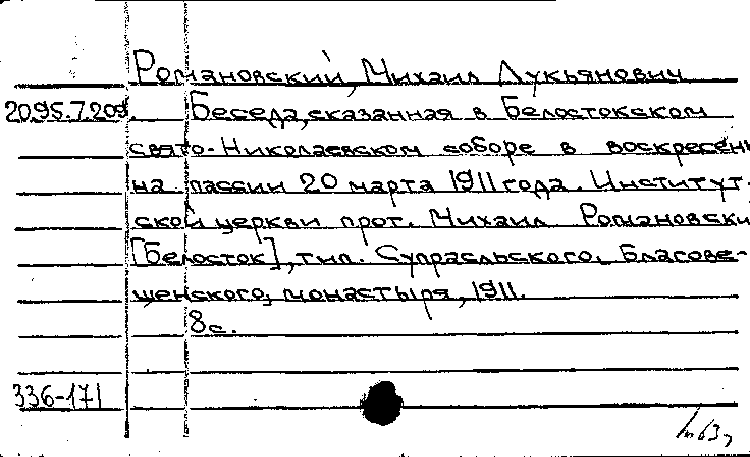 Романовский, Михаил Лукьянович
2095.7.209. Беседа, сказанная в Белостокском
свято-Николаевском соборе в воскресень
на пассии 20 марта 1911 года. Институт-
ской церкви прот. Михаил Романовски
[Белосток], тип. Супрасльского, Благове-
щенского, монастыря, 1911.
8 с.
336-171